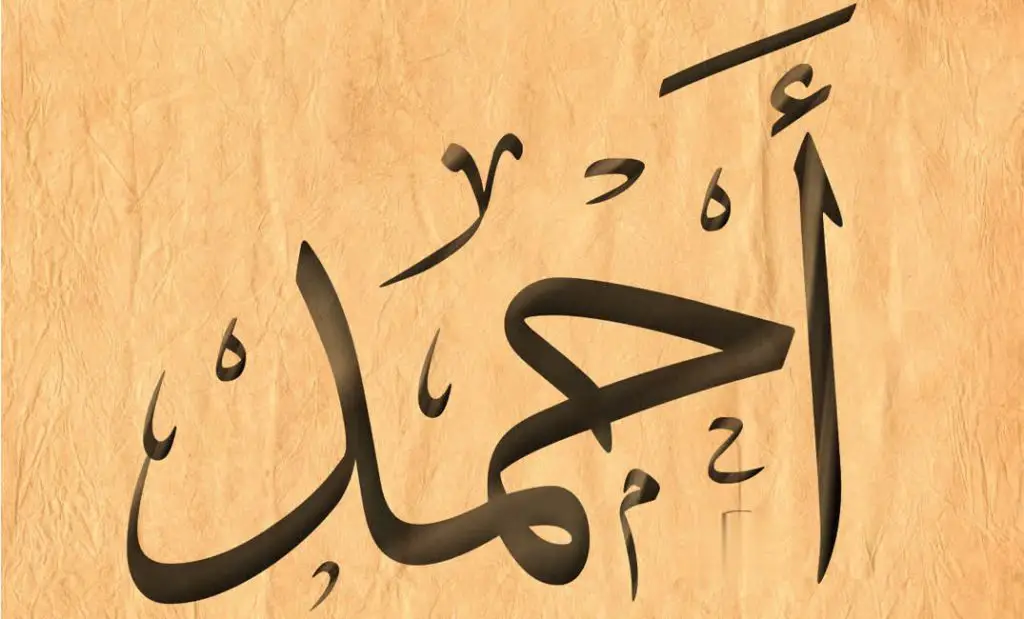 أحمد